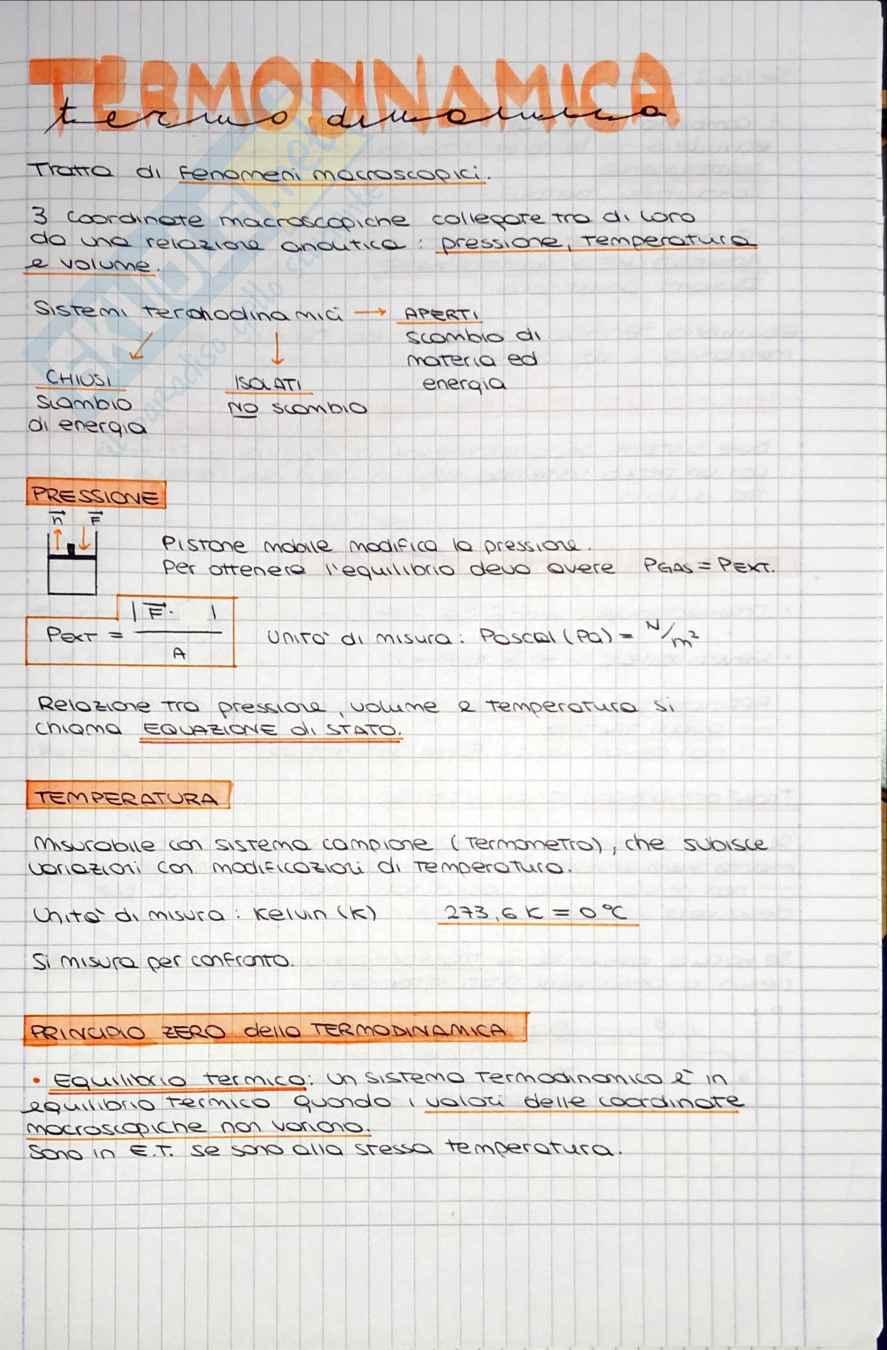 TERMODINAMICA
termodinamica
Tratta di fenomeni macroscopici.
3 coordinate macroscopiche collegate tra di loro
da una relazione analitica: pressione, temperatura
e volume.
Sistemi termodinamici → APERTI
scambio di
materia ed
energia
CHIUSI
scambio
di energia
ISOLATI
NO scambio
PRESSIONE
n F
Pistone mobile modifica la pressione.
Per ottenere l'equilibrio devo avere PGAS = PEXT.
PEXT = |F· | / A
Unità di misura: Pascal (Pa) = N/m²
Relazione tra pressione, volume e temperatura si
chiama EQUAZIONE di STATO.
TEMPERATURA
Misurabile con sistema campione (termometro), che subisce
variazioni con modificazioni di temperatura.
Unità di misura: Kelvin (K) 273,6 K = 0 °C
Si misura per confronto.
PRINCIPIO ZERO della TERMODINAMICA
• Equilibrio termico: un sistema termodinamico è in
equilibrio termico quando i valori delle coordinate
macroscopiche non variano.
Sono in E.T. se sono alla stessa temperatura.